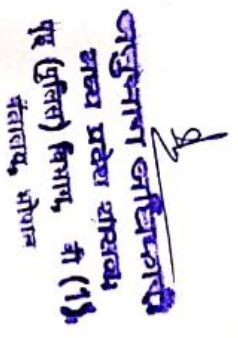 अनुभाग अधिकारी
मध्य प्रदेश शासन
गृह (पुलिस) विभाग, सी (1)
मंत्रालय, भोपाल